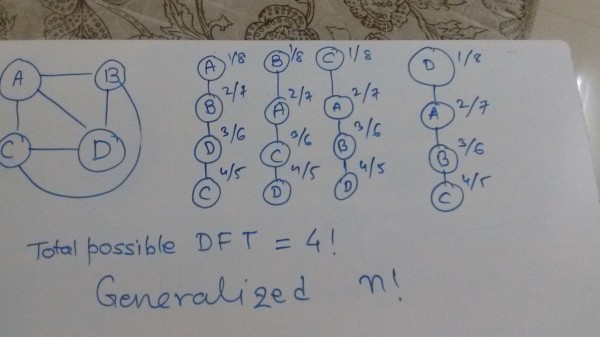 A B
C D
A 1/8 B 1/8 C 1/8 D 1/8
B 2/7 A 2/7 A 2/7 A 2/7
D 3/6 C 3/6 B 3/6 B 3/6
C 4/5 D 4/5 D 4/5 C 4/5
Total possible DFT = 4!
Generalized n!